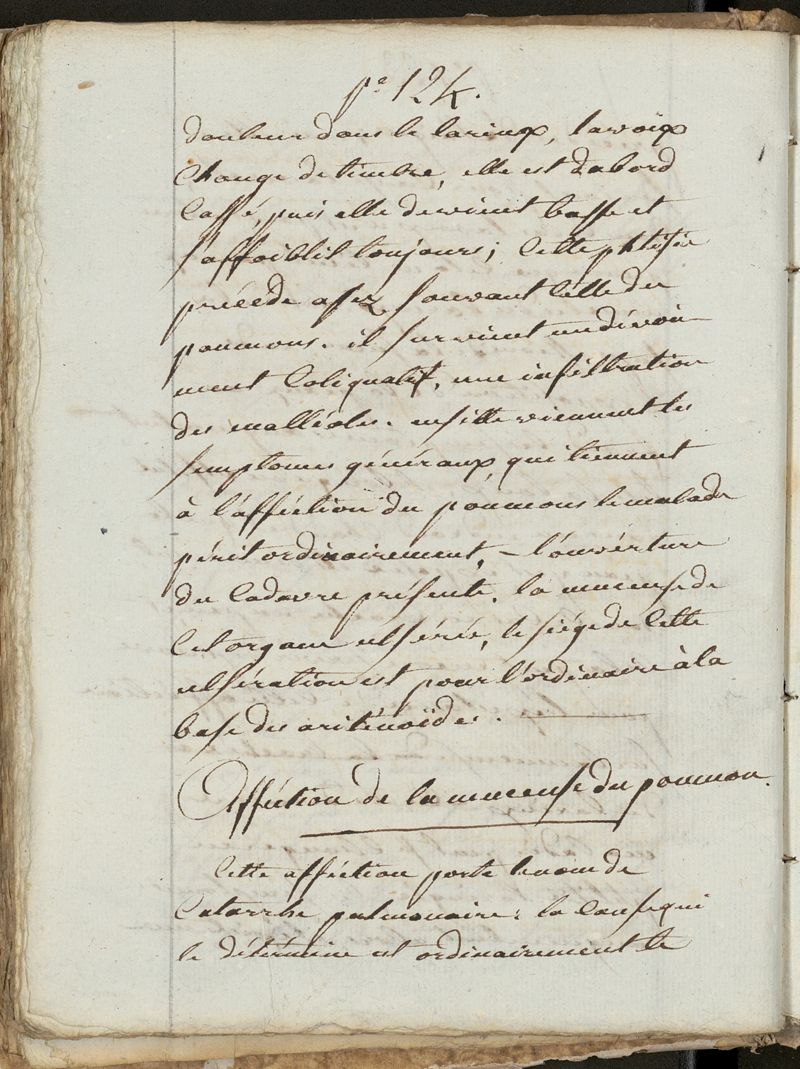 pe 124.
douleur dans le larinx, la voix
Change de timbre, elle est dabord
Cassé, puis elle devient basse et
s'affoiblit toujours; Cette phtisie
précéde assez souvant Celle du
poumons. il survient un dévoi-
ment Coliquatif, une infiltration
des malléoles. ensitte viennent les
semptomes généraux, qui tiennent
à l'afféction du poumons le malade
périt ordinairement, – l'ouvérture
du Cadavre présente, la muceuse de
Cet organe ulsérée, le siége de Cette
ulsération est pour l'ordinaire à la
base des ariténoïdes.
Afféction de la muceuse du poumon.
Cette afféction porte le nom de
Catarrhe pulmonaire; la Cause qui
le détérmine est ordinairement le